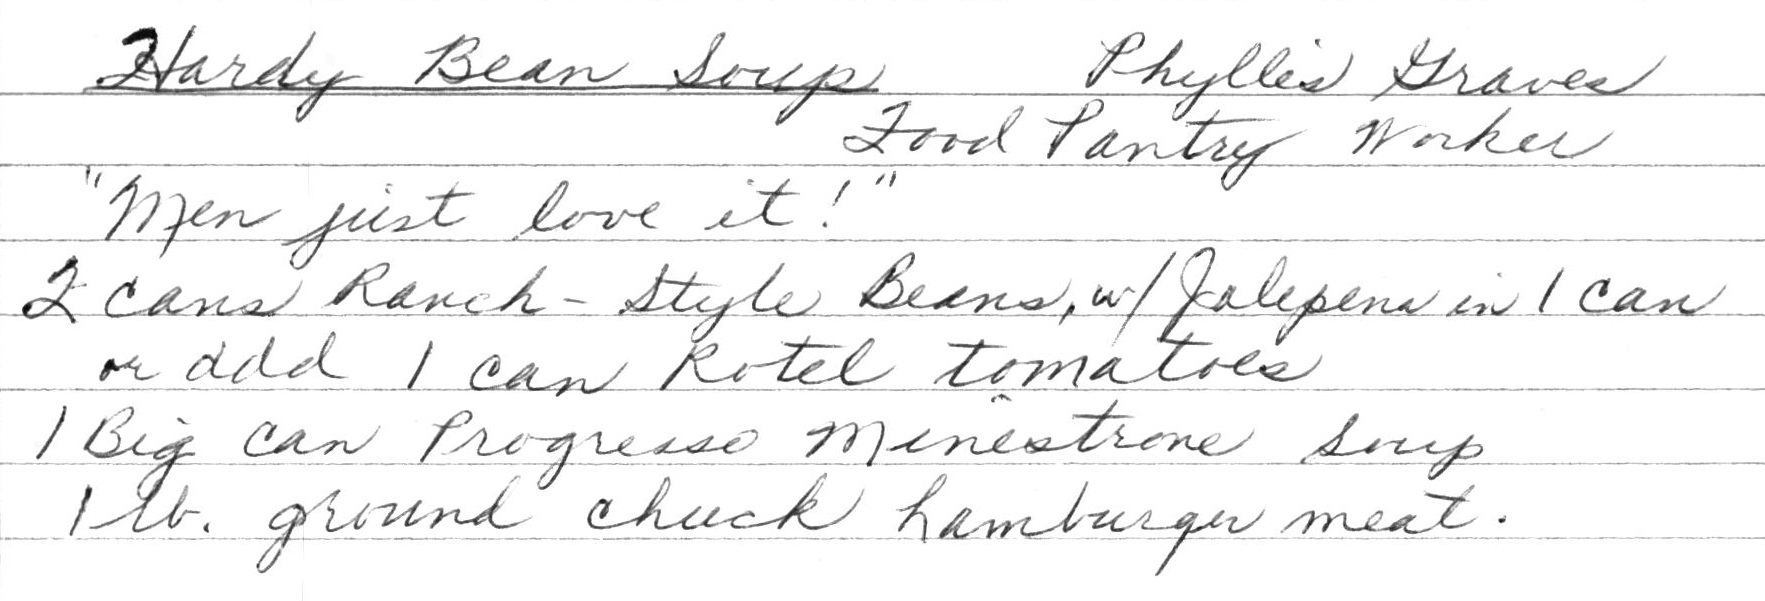 Hardy Bean Soup Phyllis Graves
Food Pantry Worker
"Men just love it!"
2 cans Ranch-Style Beans, w/ Jalepena in 1 can
or add 1 can Rotel tomatoes
1 Big can Progresso Minestrone Soup
1 lb. ground chuck hamburger meat.